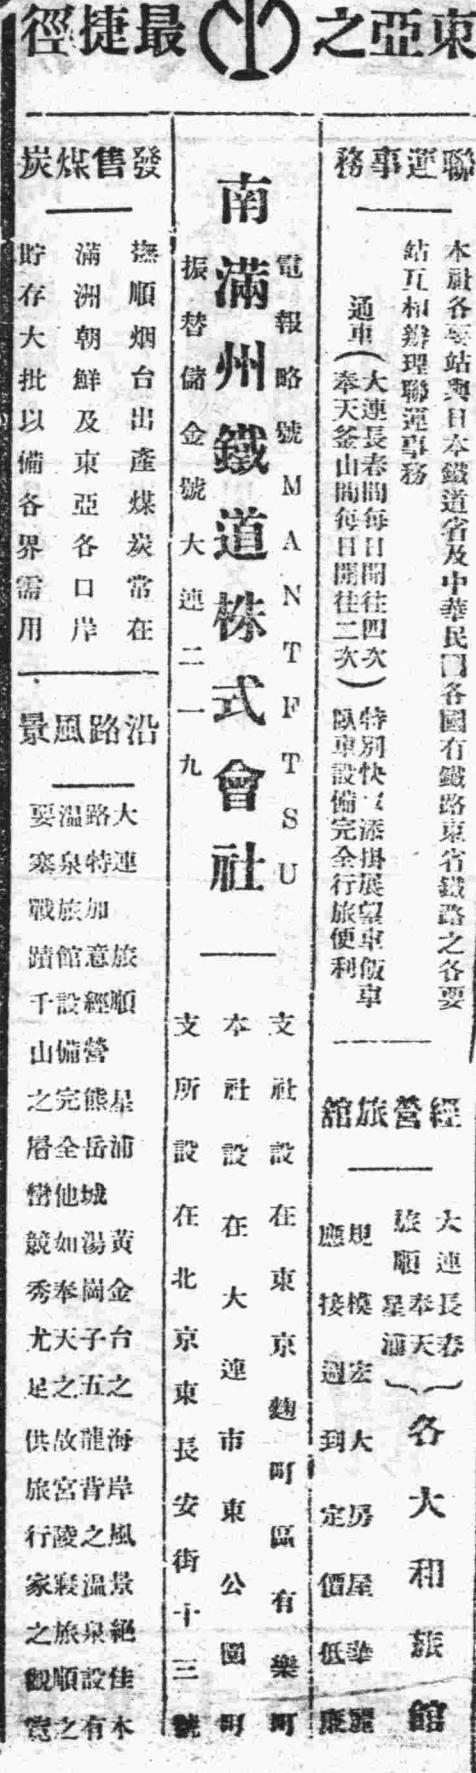 東亞之
最捷徑
聯運事務
本社各要站與日本鐵道省及中華民國各國有鐵路東省鐵路之各要
站互相辦理聯運事務
通車(大連長春間每日開往四次
奉天釜山間每日開往二次)
特別快車添掛展望車飯車
臥車設備完全行旅便利
經營旅館
大連長春
旅順奉天
星浦
各大和旅館
規模宏大房屋華麗
應接週到定價低廉
電報略號MANTETSU
南滿州鐵道株式會社
振替儲金號大連二一九
支社設在東京麴町區有樂町
本社設在大連市東公園町
支所設在北京東長安街十三號
發售煤炭
撫順烟台出產煤炭常在
滿洲朝鮮及東亞各口岸
貯存大批以備各界需用
沿路風景
大連 旅順 星浦 黃金台之海岸風景絕佳本
路特加意經營熊岳城湯崗子五龍背之溫泉設有
溫泉旅館設備完全他如奉天之故宮陵寢旅順之
要塞戰蹟千山之層巒競秀尤足供旅行家之觀覽